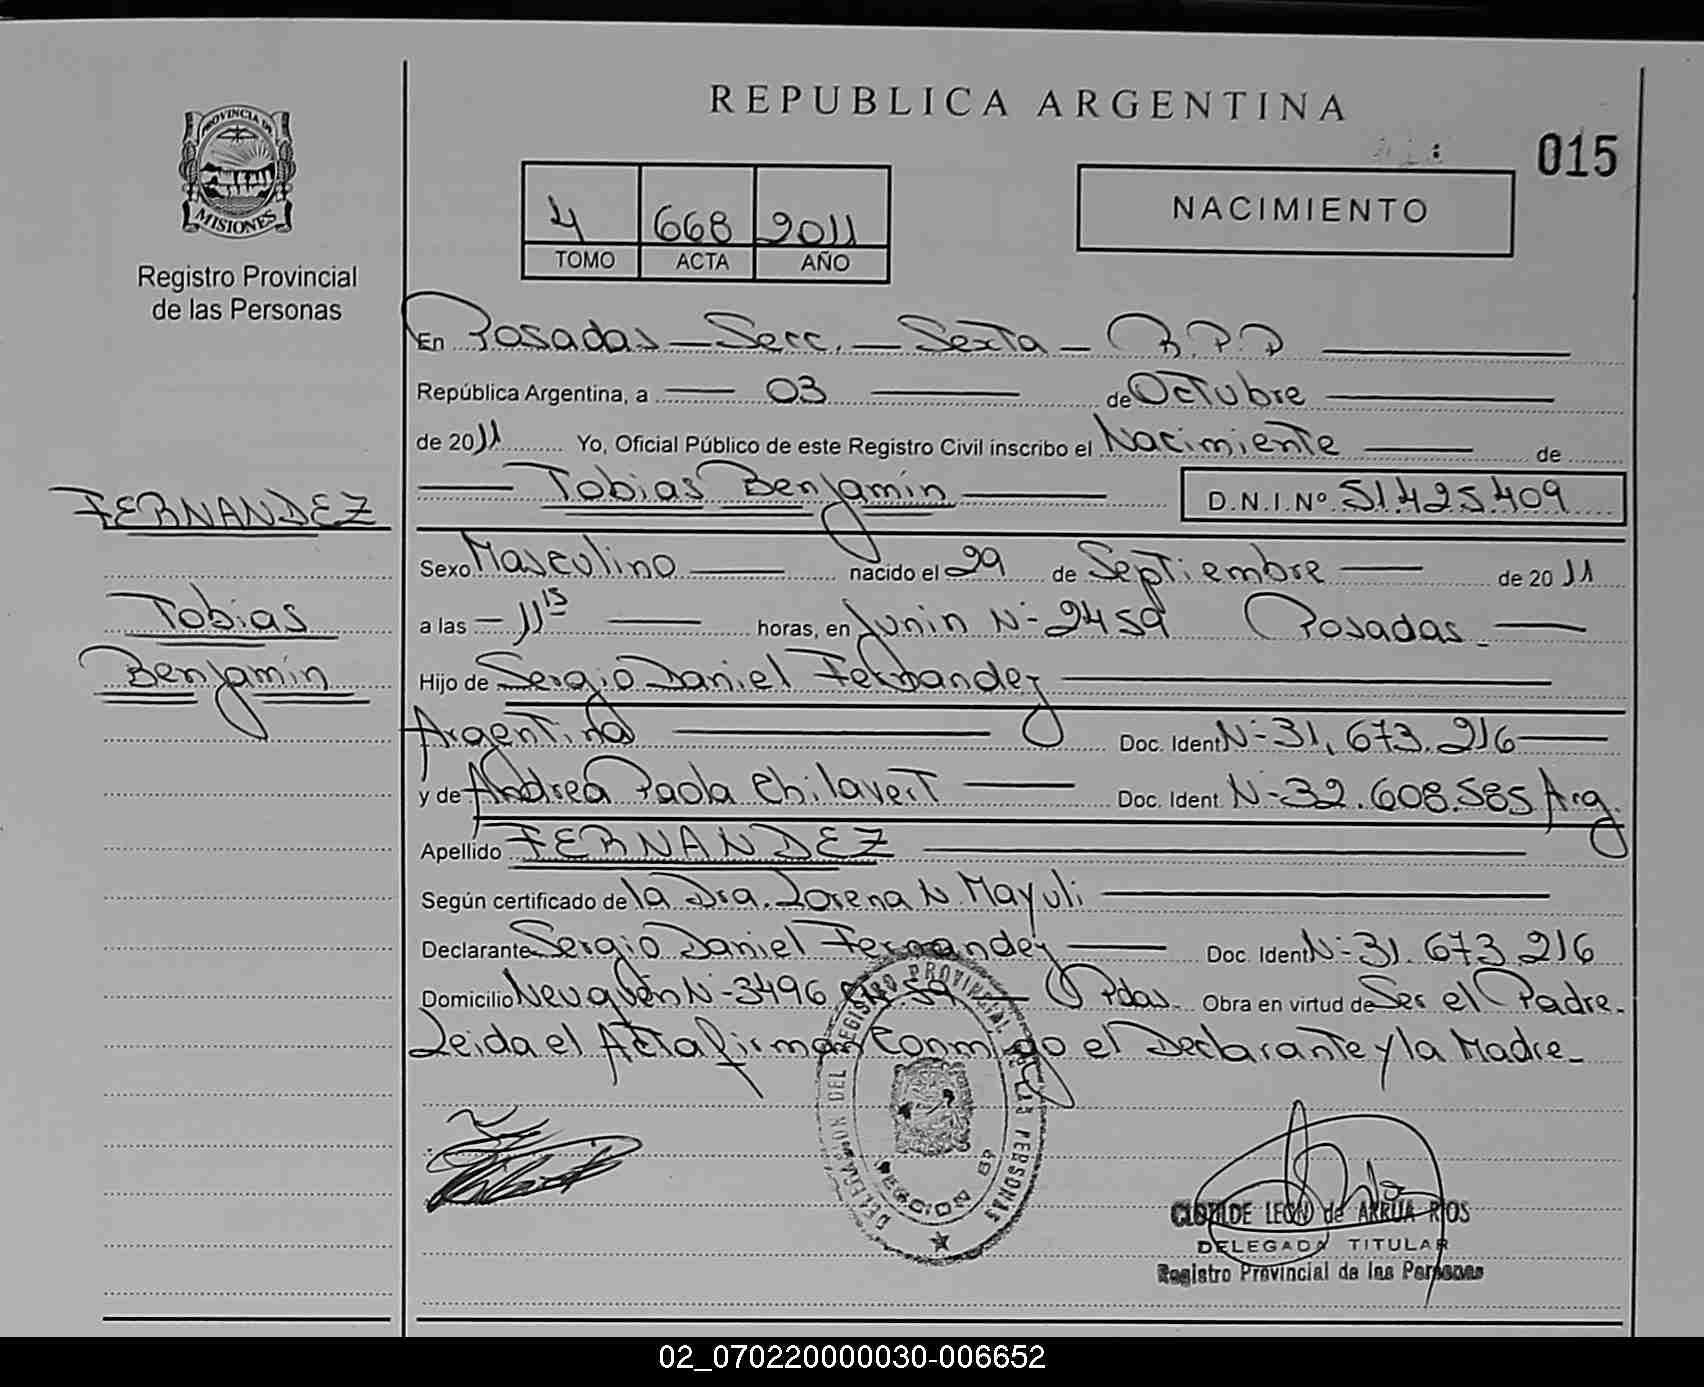 REPUBLICA ARGENTINA
015
PROVINCIA DE
MISIONES
Registro Provincial
de las Personas
4 668 2011
TOMO ACTA AÑO
NACIMIENTO
En Posadas - Secc. - Sexta - R.P.P
República Argentina, a 03 de Octubre
de 2011 Yo, Oficial Público de este Registro Civil inscribo el Nacimiento de
Tobias Benjamín D.N.I.Nº 51.425.409
FERNANDEZ
Tobias
Benjamín
Sexo Masculino nacido el 29 de Septiembre de 2011
a las - 11 15 horas, en Junin Nº 2459 Posadas
Hijo de Sergio Daniel Fernandez
Argentina Doc. Ident. Nº 31.673.216
y de Andrea Paola Chilavert Doc. Ident. Nº 32.608.585 Arg.
Apellido FERNANDEZ
Según certificado de la Dra. Lorena N. Mayuli
Declarante Sergio Daniel Fernandez Doc. Ident. Nº 31.673.216
Domicilio Neuquén Nº 3496 59 Pdas. Obra en virtud de Ser el Padre.
Leida el Acta firman Conmigo el Declarante y la Madre
DELEGACION DEL REGISTRO PROVINCIAL DE LAS PERSONAS
CLOTILDE LEON de ARRUA RIOS
DELEGADA TITULAR
Registro Provincial de las Personas
02_070220000030-006652